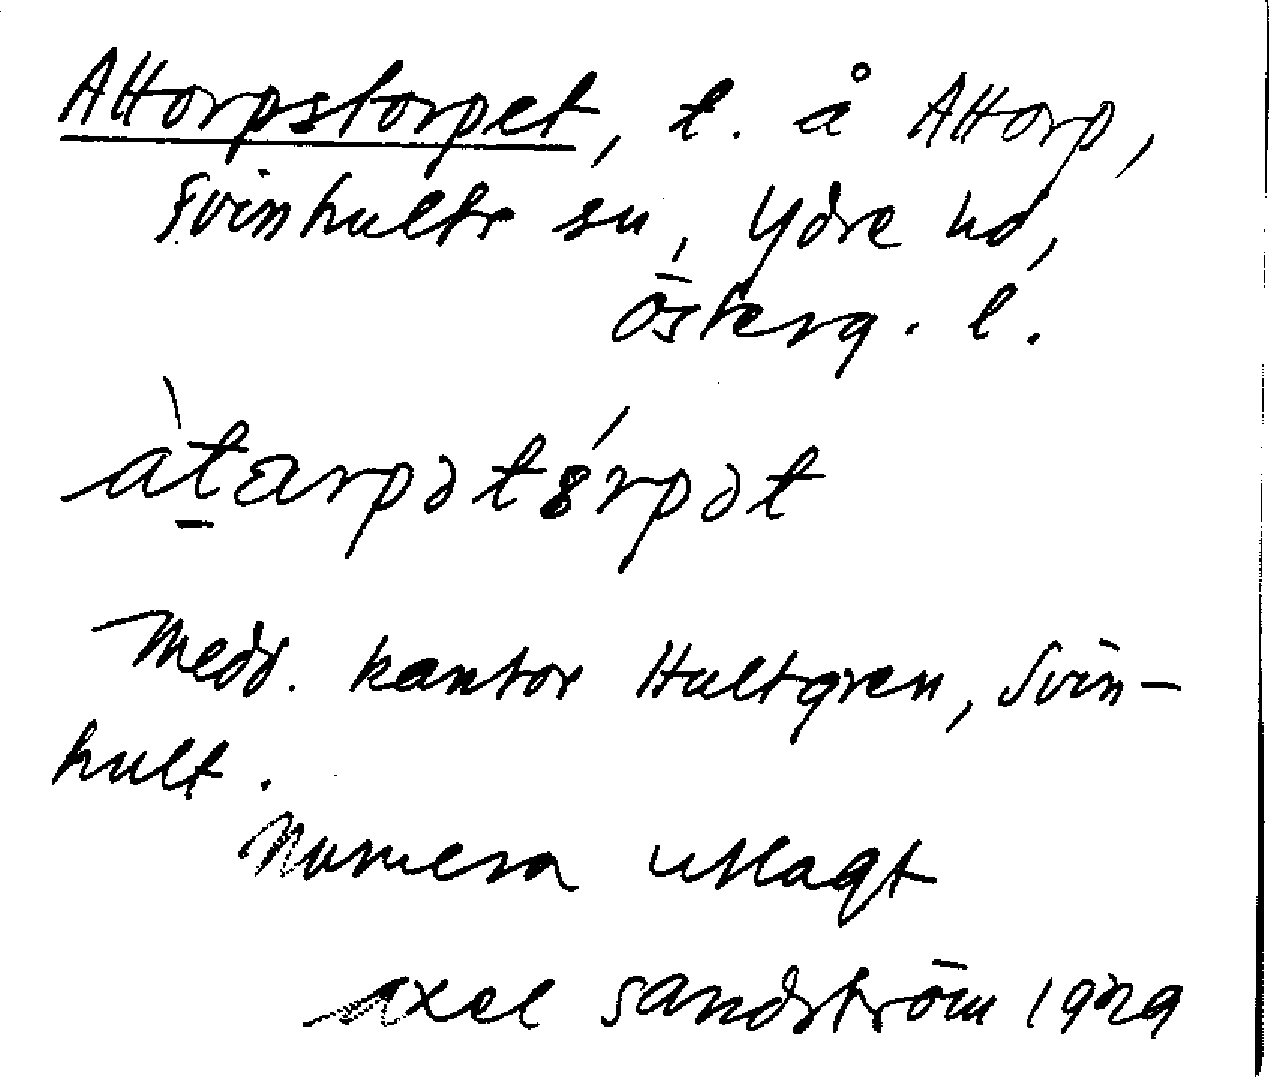 Attorpstorpet, t. å Attorp,
Svinhults sn, Ydre hd,
Österg. l.
àtarpətórpət
Medd. kantor Hultgren, Svin-
hult.
Numera utlagt
Axel Sandström 1929